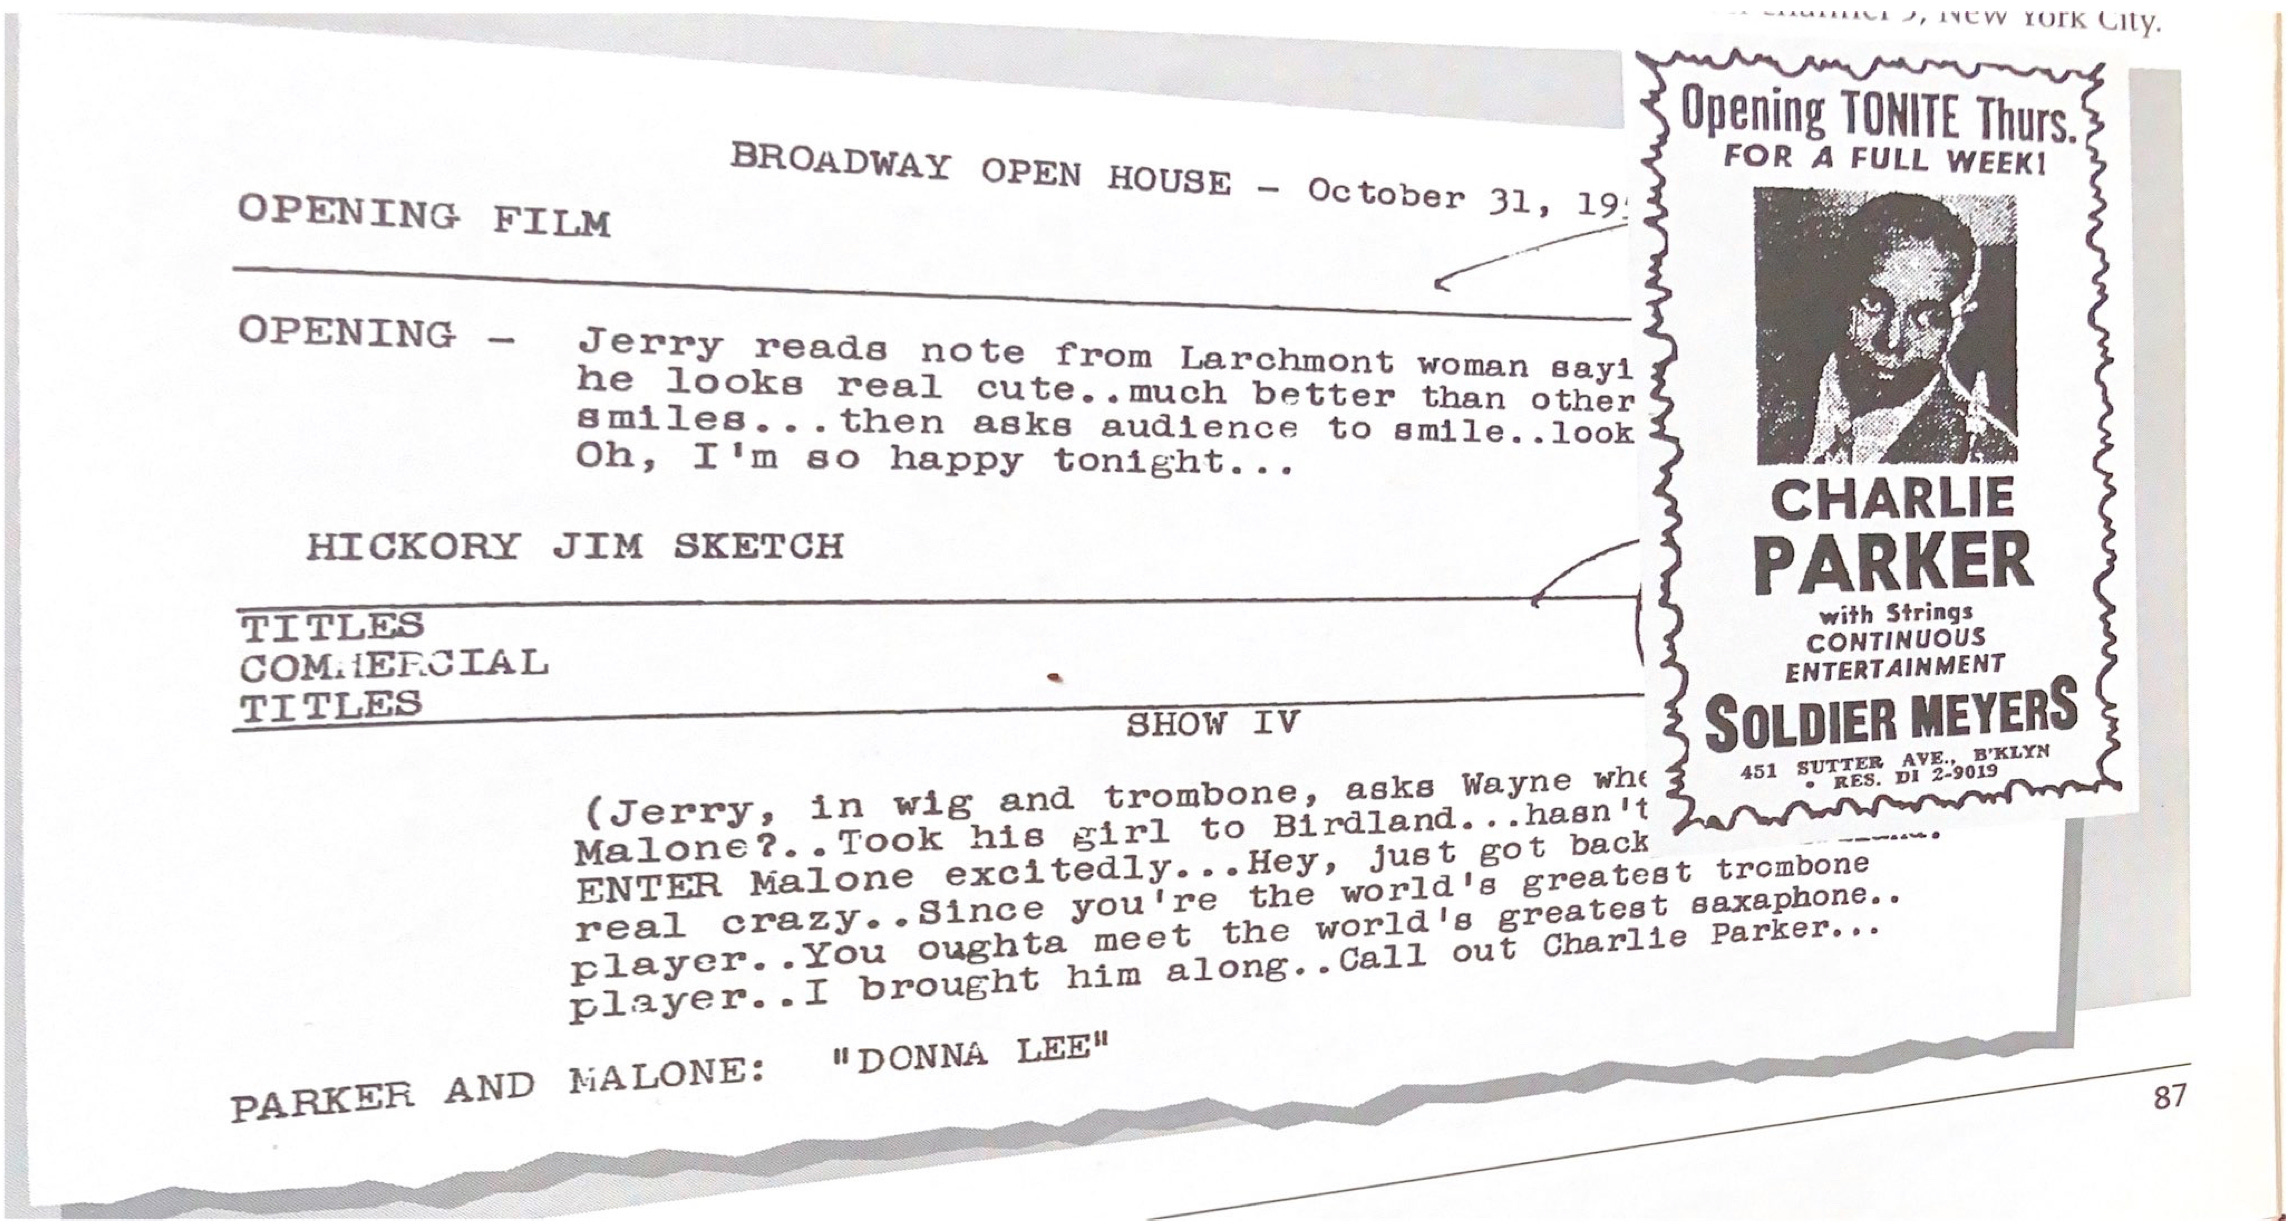 , New York City.
BROADWAY OPEN HOUSE - October 31, 19
OPENING FILM
OPENING - Jerry reads note from Larchmont woman sayi
he looks real cute..much better than other
smiles...then asks audience to smile..look
Oh, I'm so happy tonight...
HICKORY JIM SKETCH
TITLES
COMMERCIAL
TITLES
SHOW IV
(Jerry, in wig and trombone, asks Wayne whe
Malone?..Took his girl to Birdland...hasn't
ENTER Malone excitedly...Hey, just got back
real crazy..Since you're the world's greatest trombone
player..You oughta meet the world's greatest saxaphone..
player..I brought him along..Call out Charlie Parker...
PARKER AND MALONE: "DONNA LEE"
Opening TONITE Thurs.
FOR A FULL WEEK!
CHARLIE
PARKER
with Strings
CONTINUOUS
ENTERTAINMENT
SOLDIER MEYERS
451 SUTTER AVE., B'KLYN
• RES. DI 2-9019
87